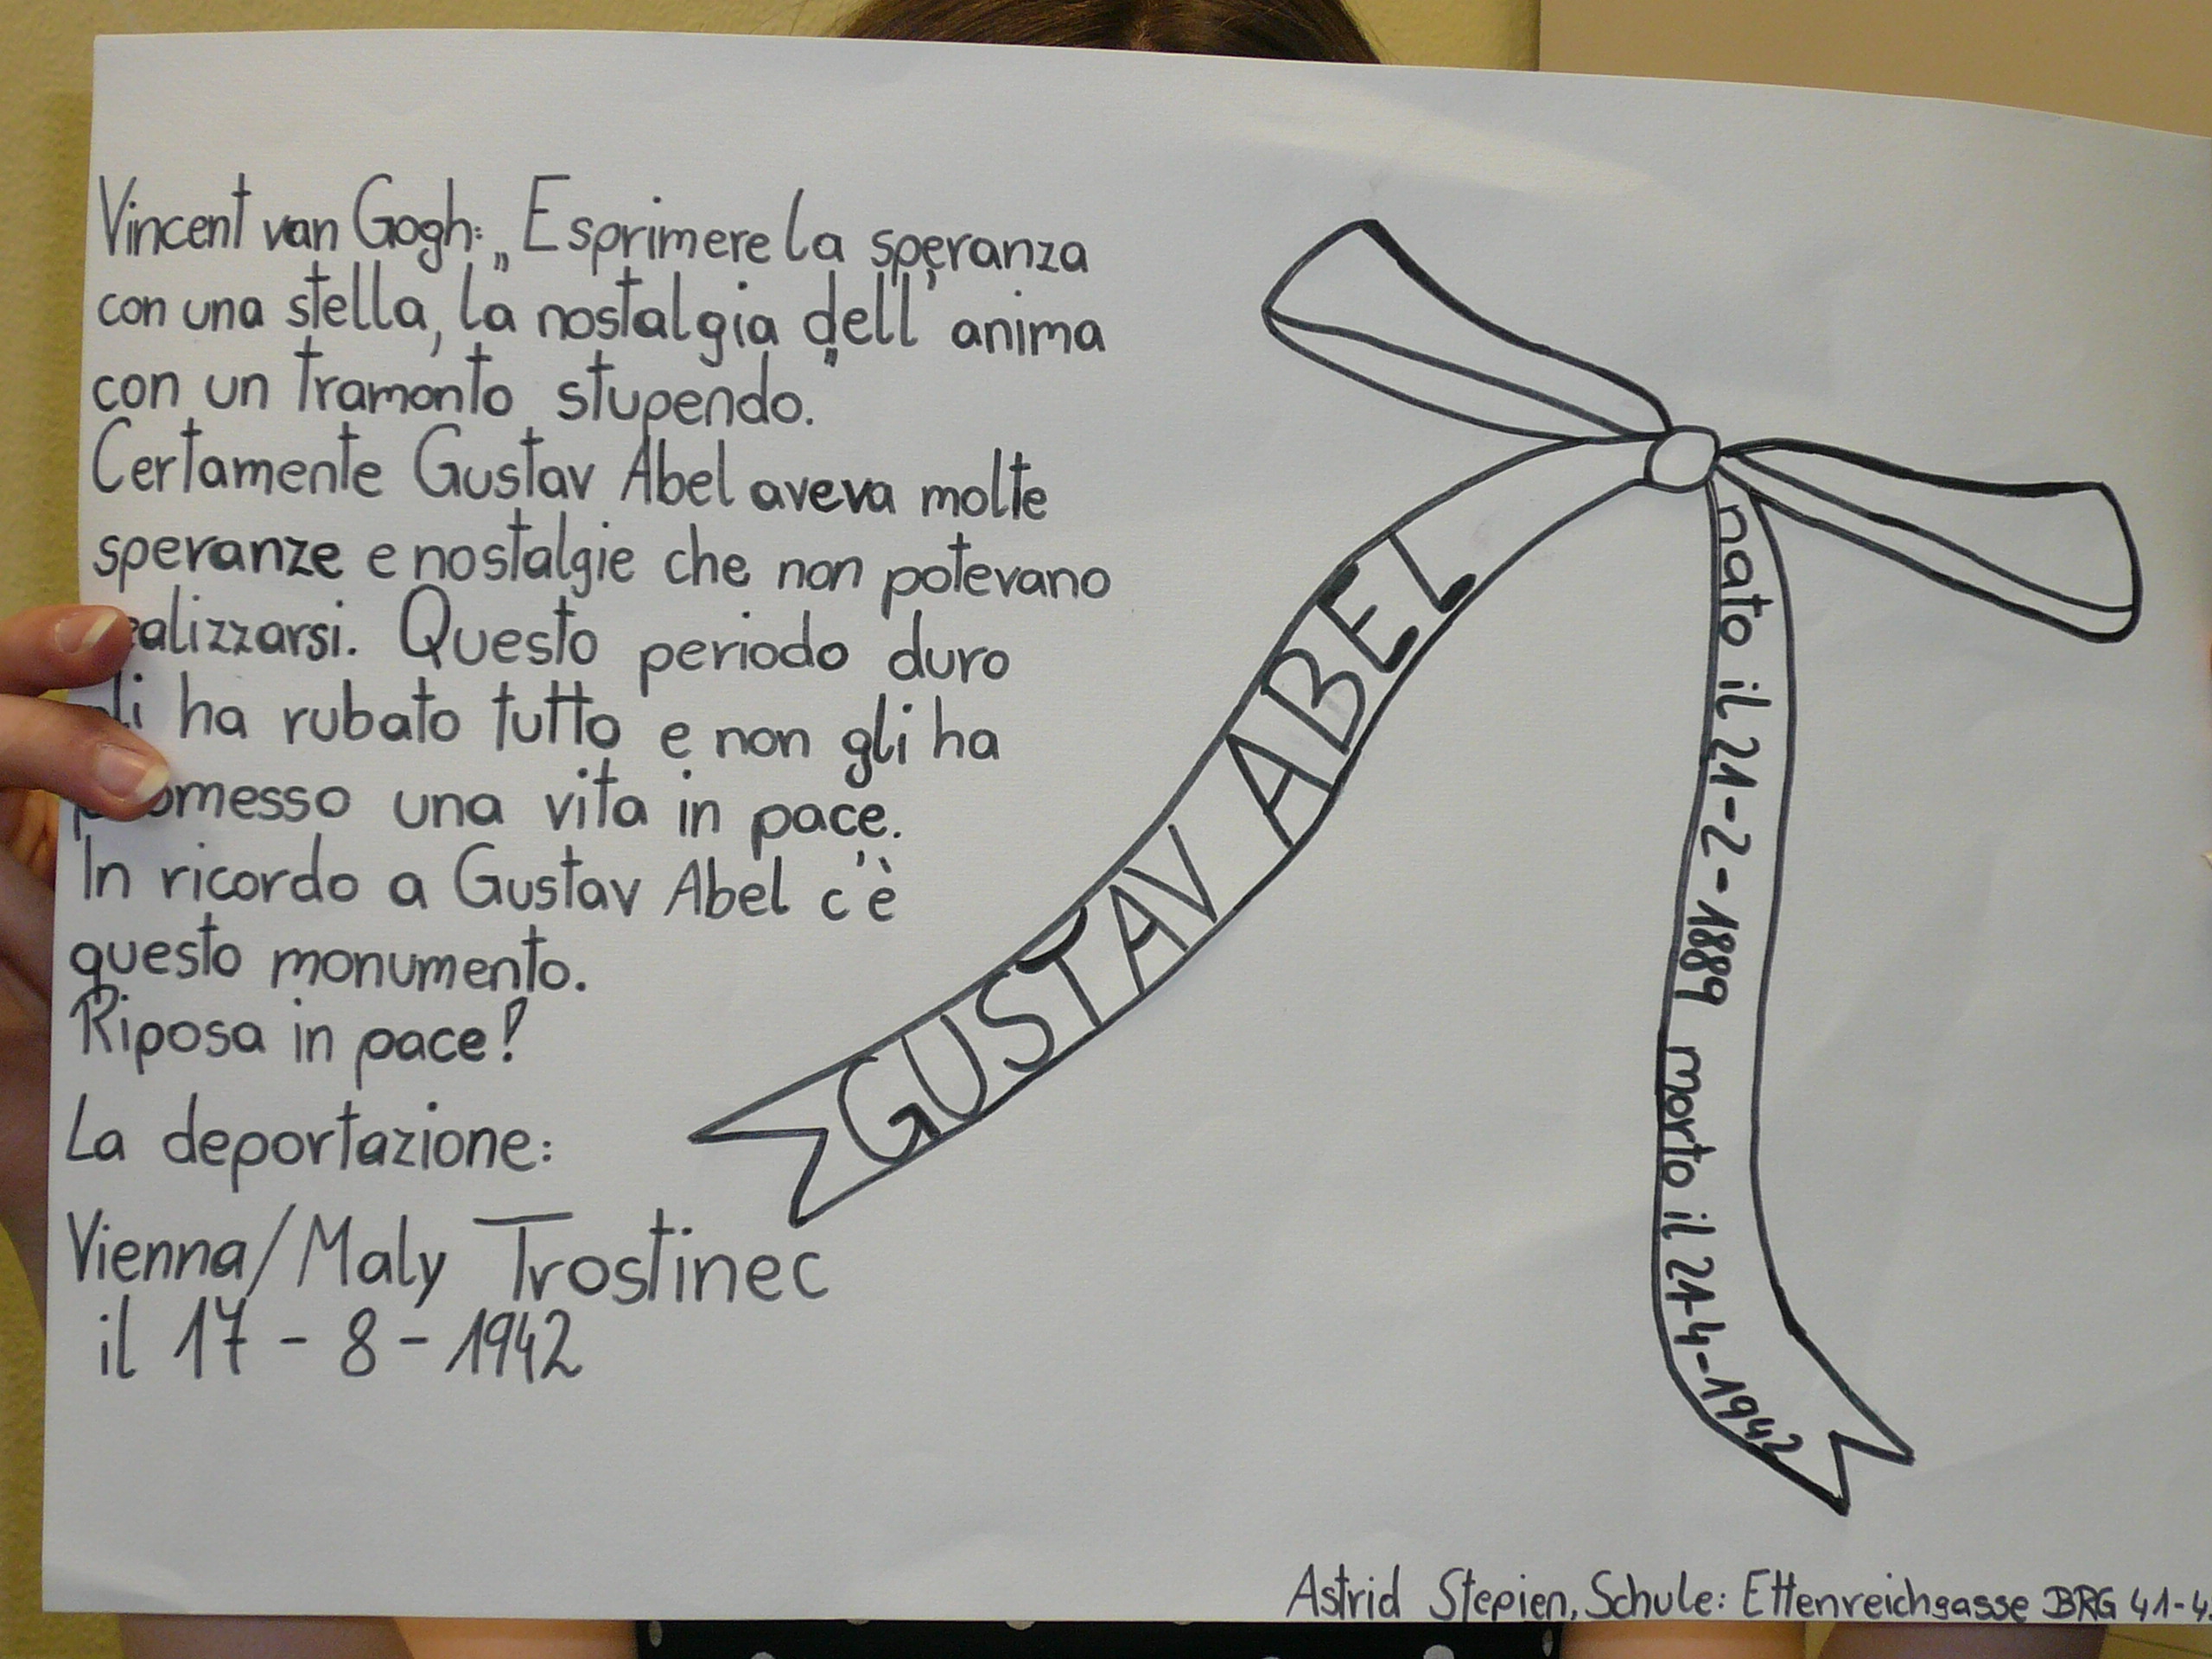 Vincent van Gogh: „Esprimere la speranza
con una stella, la nostalgia dell' anima
con un tramonto stupendo."
Certamente Gustav Abel aveva molte
speranze e nostalgie che non potevano
realizzarsi. Questo periodo duro
gli ha rubato tutto e non gli ha
promesso una vita in pace.
In ricordo a Gustav Abel c'è
questo monumento.
Riposa in pace!
La deportazione:
Vienna/Maly Trostinec
il 17-8-1942
GUSTAV ABEL
nato il 21-2-1889 morto il 21-4-1942
Astrid Stepien, Schule: Ettenreichgasse BRG 41-4.